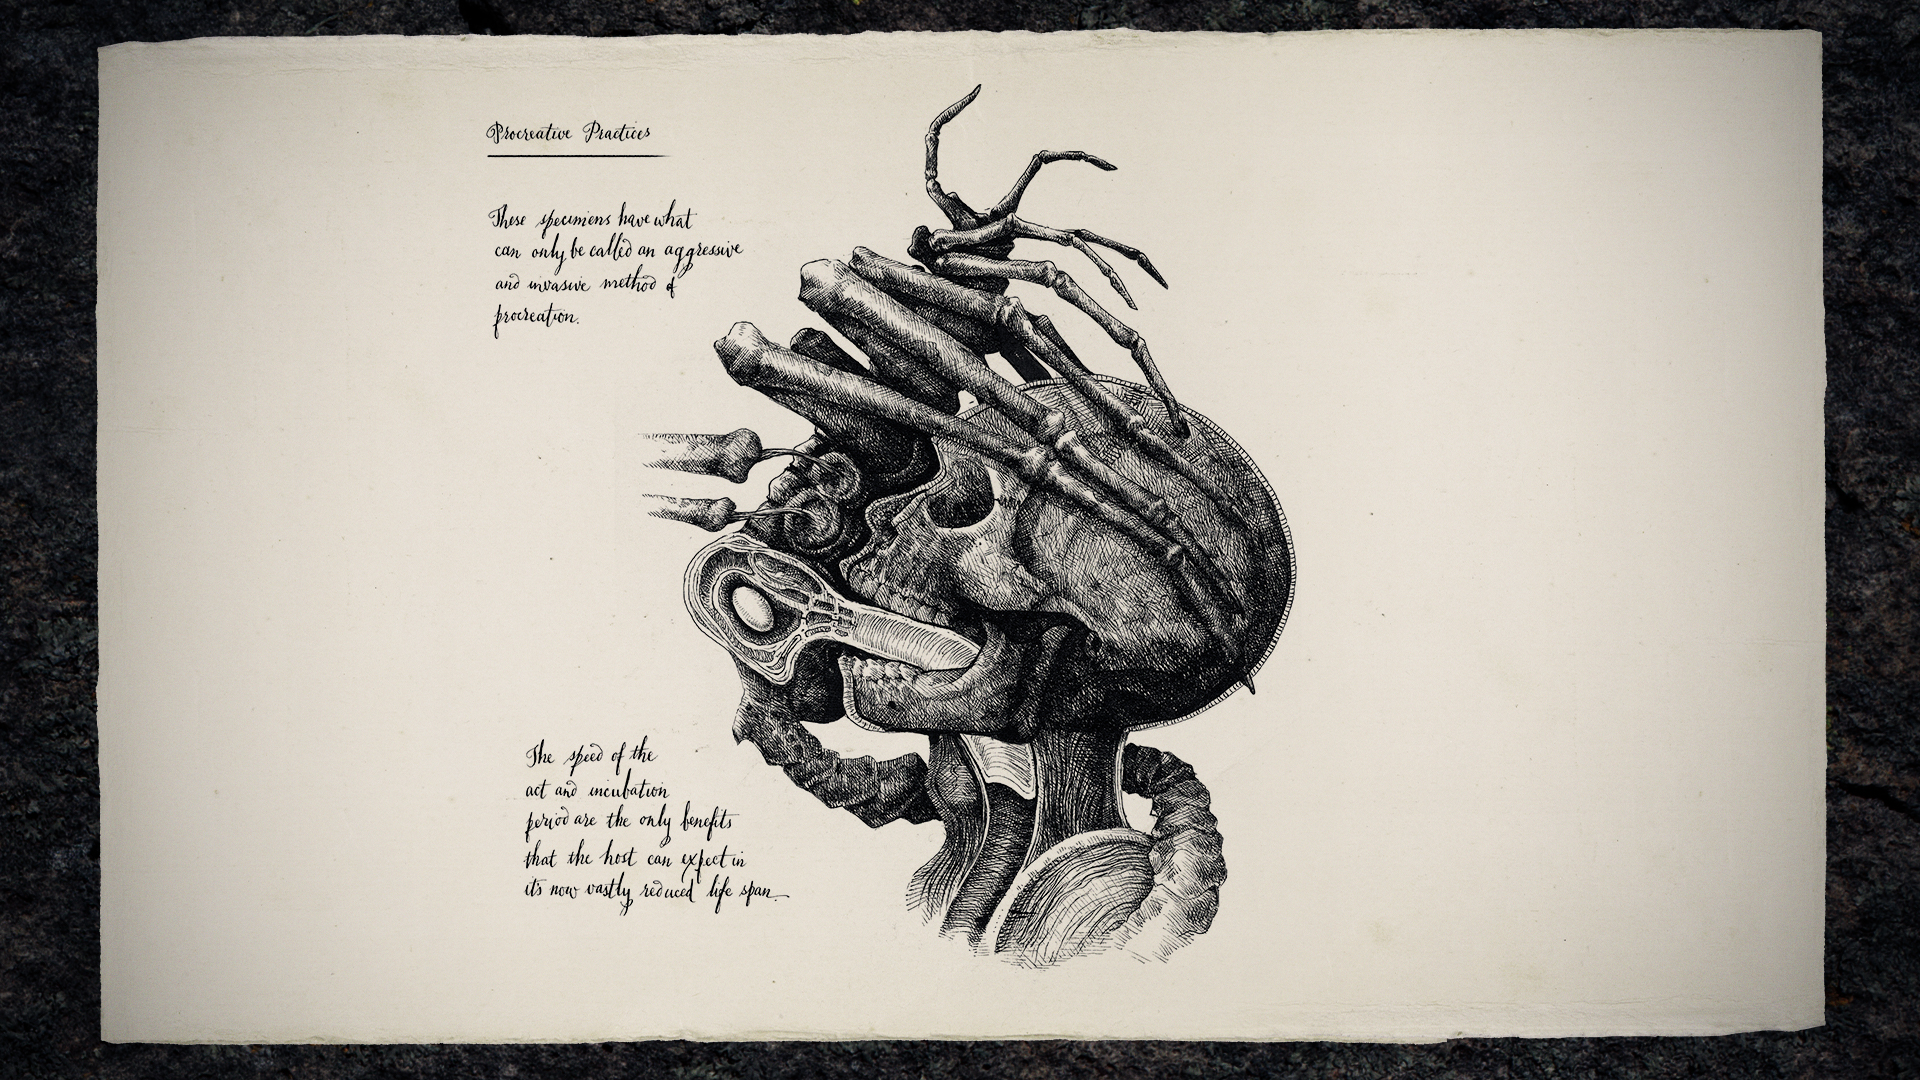 Procreative Practices
These specimens have what
can only be called an aggressive
and invasive method of
procreation.
The speed of the
act and incubation
period are the only benefits
that the host can expect in
it's now vastly reduced life span.